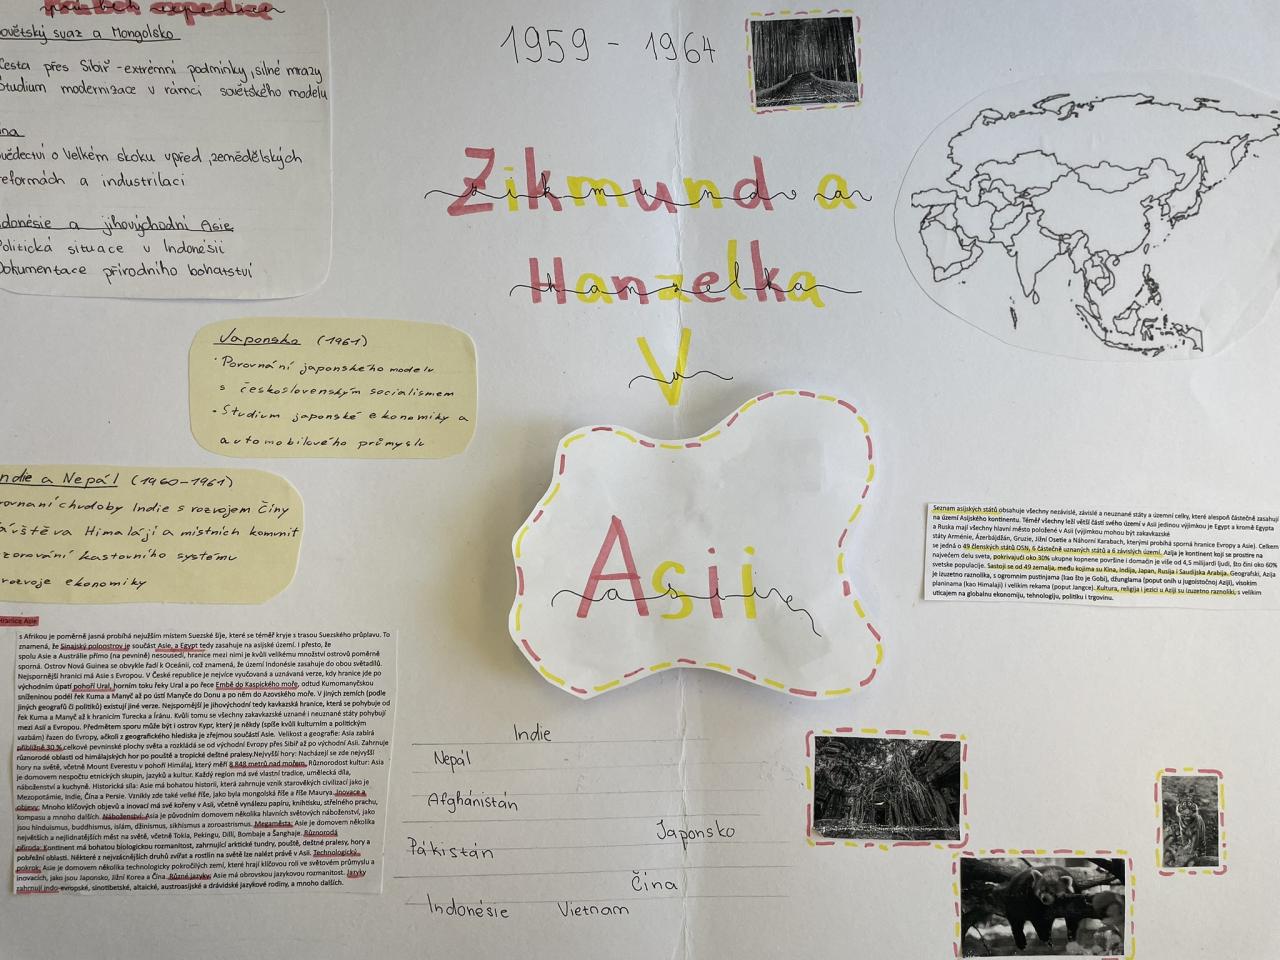 průběh expedice
Sovětský svaz a Mongolsko
Cesta přes Sibiř - extrémní podmínky, silné mrazy
Studium modernizace v rámci sovětského modelu
ína
vědectví o Velkém skoku vpřed, zemědělských
reformách a industrilaci
donésie a jihovýchodní Asie
Politická situace v Indonésii
Dokumentace přírodního bohatství
1959 - 1964
Zikmund a
Hanzelka
V
Asii
Japonsko (1961)
· Porovnání japonského modelu
s československým socialismem
· Studium japonské ekonomiky a
automobilového průmyslu
Indie a Nepál (1960-1961)
rovnaní chudoby Indie s rozvojem Číny
ávštěva Himalájí a místních komunit
zorování kastovního systému
rozvoje ekonomiky
Hranice Asie
s Afrikou je poměrně jasná probíhá nejužším místem Suezské šíje, které se téměř kryje s trasou Suezského průplavu. To
znamená, že Sinajský poloostrov je součást Asie, a Egypt tedy zasahuje na asijské území. I přesto, že
spolu Asie a Austrálie přímo (na pevnině) nesousedí, hranice mezi nimi je kvůli velikému množství ostrovů poměrně
sporná. Ostrov Nová Guinea se obvykle řadí k Oceánii, což znamená, že území Indonésie zasahuje do obou světadílů.
Nejspornější hranicí má Asie s Evropou. V České republice je nejvíce vyučovaná a uznávaná verze, kdy hranice jde po
východním úpatí pohoří Ural, horním toku řeky Ural a po řece Embě do Kaspického moře, odtud Kumomanyčskou
sníženinou podél řek Kuma a Manyč až po ústí Manyče do Donu a po něm do Azovského moře. V jiných zemích (podle
jiných geografů či politiků) existují jiné verze. Nejspornější je jihovýchodní tedy kavkazská hranice, která se pohybuje od
řek Kuma a Manyč až k hranicím Turecka a Íránu. Kvůli tomu se všechny zakavkazské uznané i neuznané státy pohybují
mezi Asií a Evropou. Předmětem sporu může být i ostrov Kypr, který je někdy (spíše kvůli kulturním a politickým
vazbám) řazen do Evropy, ačkoli z geografického hlediska je zřejmou součástí Asie. Velikost a geografie: Asia zabírá
přibližně 30 % celkové pevninské plochy světa a rozkládá se od východní Evropy přes Sibiř až po východní Asii. Zahrnuje
různorodé oblasti od himálajských hor po pouště a tropické deštné pralesy.Nejvyšší hory: Nacházejí se zde nejvyšší
hory na světě, včetně Mount Everestu v pohoří Himálaj, který měří 8 848 metrů nad mořem. Různorodost kultur: Asia
je domovem nespočtu etnických skupin, jazyků a kultur. Každý region má své vlastní tradice, umělecká díla,
náboženství a kuchyně. Historická síla: Asie má bohatou historii, která zahrnuje vznik starověkých civilizací jako je
Mezopotámie, Indie, Čína a Persie. Vznikly zde také velké říše, jako byla mongolská říše a říše Maurya. Inovace a
objevy: Mnoho klíčových objevů a inovací má své kořeny v Asii, včetně vynálezu papíru, knihtisku, střelného prachu,
kompasu a mnoho dalších. Náboženství: Asie je původním domovem několika hlavních světových náboženství, jako
jsou hinduismus, buddhismus, islám, džinismus, sikhismus a zoroastrismus. Megaměsta: Asie je domovem několika
největších a nejlidnatějších měst na světě, včetně Tokia, Pekingu, Dillí, Bombaje a Šanghaje. Různorodá
příroda: Kontinent má bohatou biologickou rozmanitost, zahrnující arktické tundry, pouště, deštné pralesy, hory a
pobřežní oblasti. Některé z nejvzácnějších druhů zvířat a rostlin na světě lze nalézt právě v Asii. Technologický
pokrok: Asie je domovem několika technologicky pokročilých zemí, které hrají klíčovou roli ve světovém průmyslu a
inovacích, jako jsou Japonsko, Jižní Korea a Čína. Různé jazyky: Asie má obrovskou jazykovou rozmanitost. Jazyky
zahrnují indo-evropské, sinotibetské, altaické, austroasijské a drávidské jazykové rodiny, a mnoho dalších.
Indie
Nepál
Afghánistán
Japonsko
Pákistán
Čína
Indonésie Vietnam
Seznam asijských států obsahuje všechny nezávislé, závislé a neuznané státy a územní celky, které alespoň částečně zasahují
na území Asijského kontinentu. Téměř všechny leží větší částí svého území v Asii jedinou výjimkou je Egypt a kromě Egypta
a Ruska mají všechny hlavní město položené v Asii (výjimkou mohou být zakavkazské
státy Arménie, Ázerbájdžán, Gruzie, Jižní Osetie a Náhorní Karabach, kterými probíhá sporná hranice Evropy a Asie). Celkem
se jedná o 49 členských států OSN, 6 částečně uznaných států a 6 závislých území. Azija je kontinent koji se prostire na
najvećem delu sveta, pokrivajući oko 30% ukupne kopnene površine i domaćin je više od 4,5 milijardi ljudi, što čini oko 60%
svetske populacije. Sastoji se od 49 zemalja, među kojima su Kina, Indija, Japan, Rusija i Saudijska Arabija. Geografski, Azija
je izuzetno raznolika, s ogromnim pustinjama (kao što je Gobi), džunglama (poput onih u jugoistočnoj Aziji), visokim
planinama (kao Himalaji) i velikim rekama (poput Jangce). Kultura, religija i jezici u Aziji su izuzetno raznoliki, s velikim
uticajem na globalnu ekonomiju, tehnologiju, politiku i trgovinu.